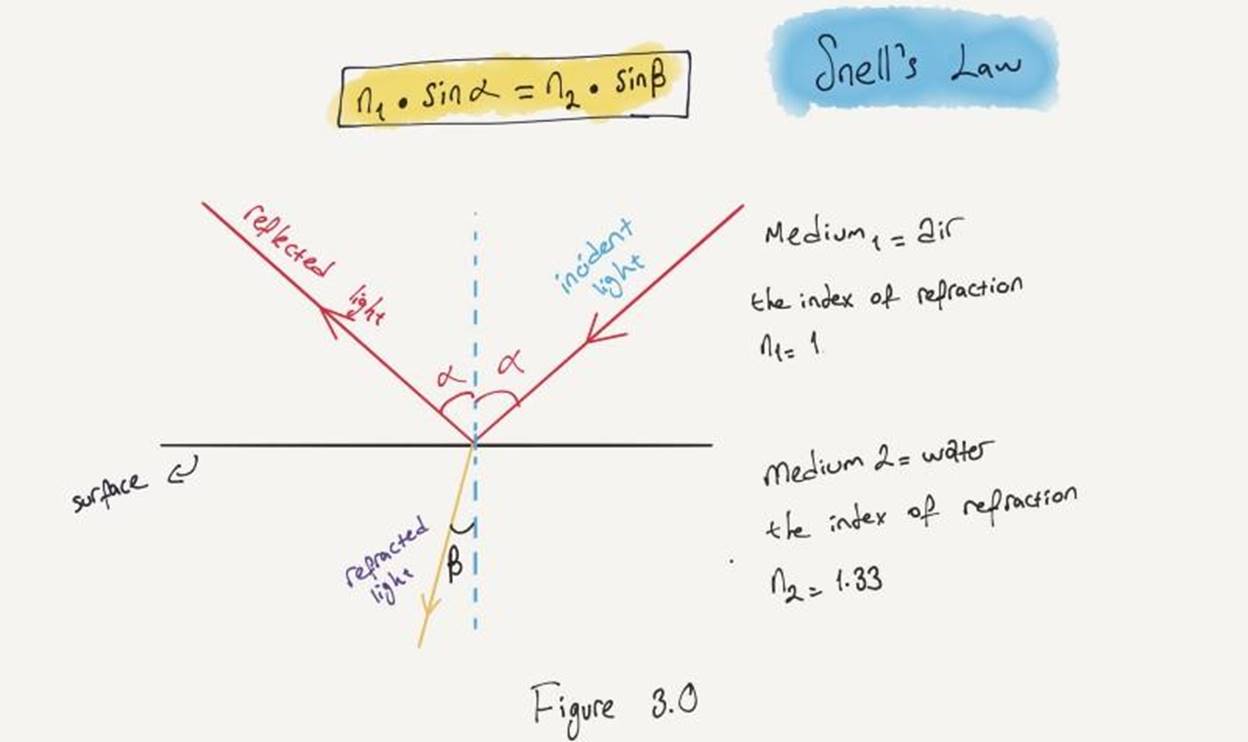 n₁ • sinα = n₂ • sinβ
Snell's Law
reflected light
incident
light
α
α
Medium₁ = air
the index of refraction
n₁= 1
surface
refracted
light
β
Medium 2 = water
the index of refraction
n₂ = 1.33
Figure 3.0